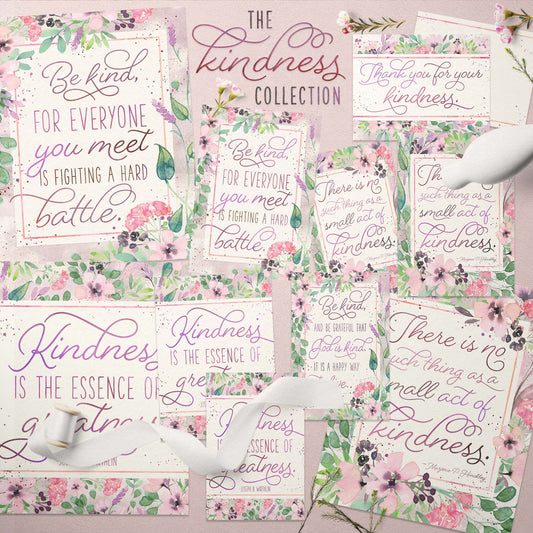 THE
kindness
COLLECTION
Be kind,
FOR EVERYONE
you meet
IS FIGHTING A HARD
battle.
Be kind,
FOR EVERYONE
you meet
IS FIGHTING A HARD
battle.
Thank you for your
kindness.
There is no
such thing as a
small act of
kindness.
such thing as a
small act of
kindness.
Kindness
IS THE ESSENCE OF
greatness.
Kindness
IS THE ESSENCE OF
ESSENCE OF
greatness.
JOSEPH B. WIRTHLIN
Be kind,
AND BE GRATEFUL THAT
God is kind.
IT IS A HAPPY WAY
There is no
such thing as a
small act of
kindness.